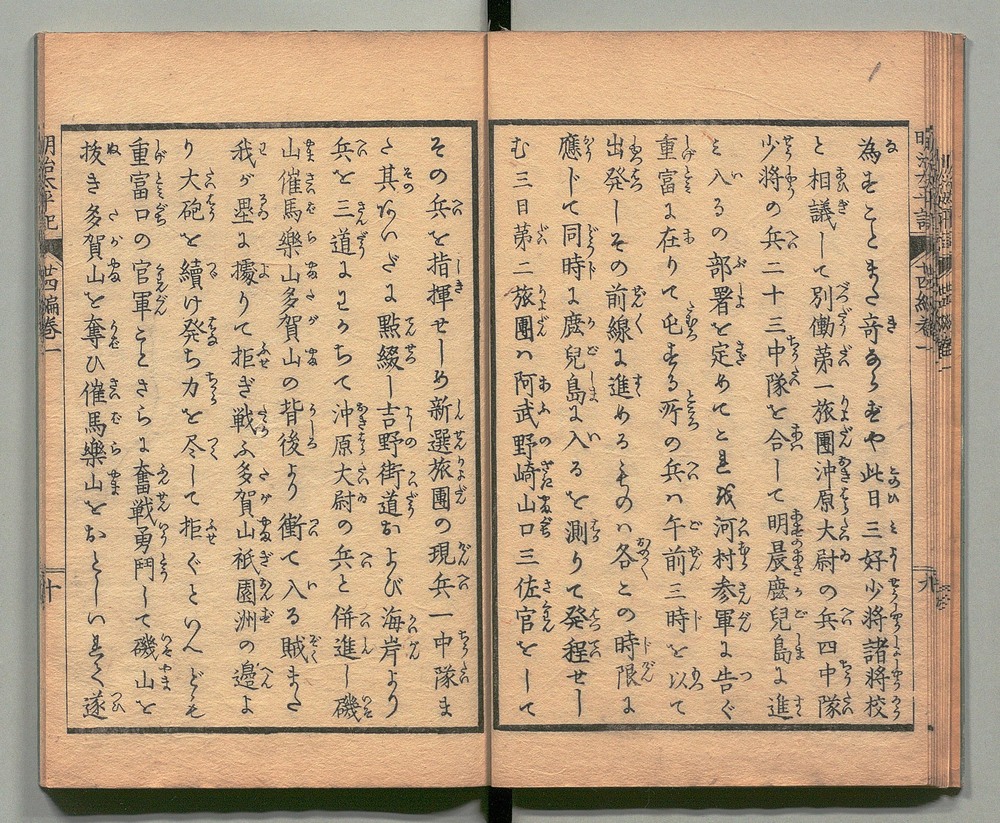 為すことまた奇ならずや此日三好少将諸将校
と相議して別働第一旅團沖原大尉の兵四中隊
少将の兵二十三中隊を合して明晨麑児島に進
み入るの部署を定めてこれを河村参軍に告ぐ
重富に在りて屯する所の兵ハ午前三時を以て
出発しその前線に進めるものハ各この時限に
應じて同時に麑児島に入るを測りて発程せし
む三日第二旅團ハ阿武野崎山口三佐官をして
明治太平記
廿四編巻一
九
その兵を指揮せしめ新選旅團の現兵一中隊ま
た其あいだに點綴し吉野街道および海岸より
兵を三道にわかちて沖原大尉の兵と併進し磯
山催馬樂山多賀山の背後より衝て入る賊また
我が塁に據りて拒ぎ戦ふ多賀山祇園洲の邉よ
り大砲を續け発ち力を尽して拒ぐといへども
重富口の官軍ことさらに奮戦勇鬥して磯山を
抜き多賀山を奪ひ催馬樂山をおとしいれて遂
明治太平記
廿四編巻一
十